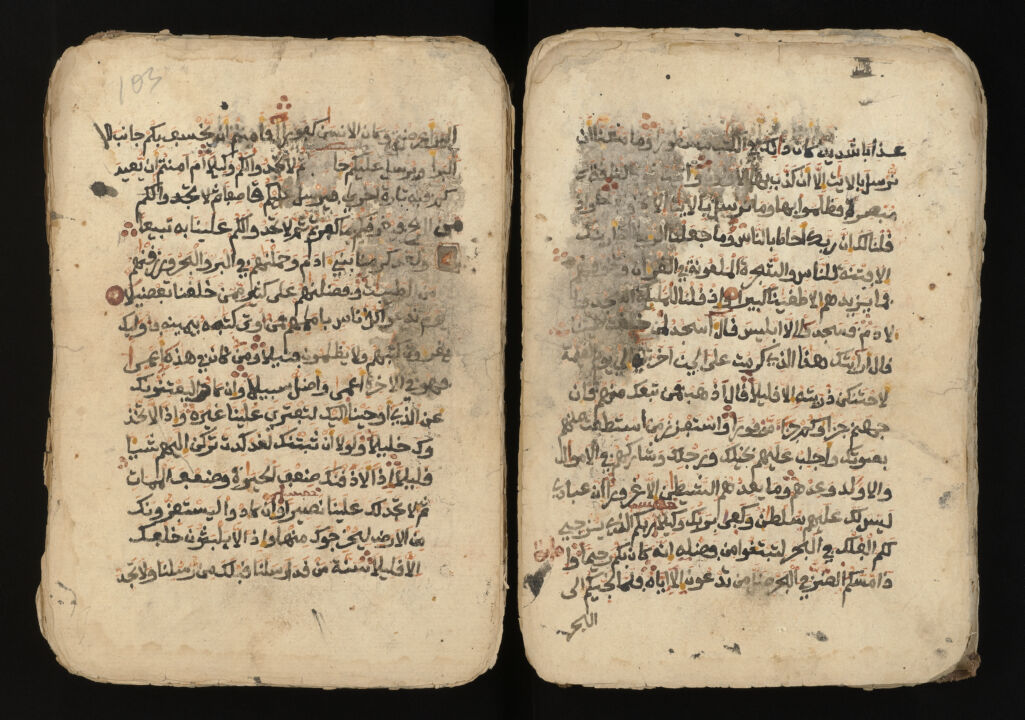 عذابا شديدا كان ذلك في الكتب مسطورا وما منعنا ان
نرسل بالايت الا ان كذب بها
مبصرة فظلموا بها وما نرسل بالايت الا
قلنا لك ان ربك احاط بالناس وما جعلنا
الا فتنة للناس والشجرة الملعونة في القران
فما يزيدهم الا طغينا كبيرا واذ قلنا للمليكة اسجدوا
لادم فسجدوا الا ابليس قال اسجد لمن خلقت
قال اريتك هذا الذي كرمت علي لين اخرتن الى يوم القيمة
لاحتنكن ذريته الا قليلا قال اذهب فمن تبعك منهم فان
جهنم جزاوكم جزاء موفورا واستفزز من استطعت منهم
بصوتك واجلب عليهم بخيلك ورجلك وشاركهم في الاموال
والاولد وعدهم وما يعدهم الشيطن الا غرورا ان عبادي
ليس لك عليهم سلطن وكفى بربك وكيلا ربكم الذي يزجي
لكم الفلك في البحر لتبتغوا من فضله انه كان بكم رحيما وا
ذا مسكم الضر في البحر ضل من تدعون الا اياه فلما نجيكم الى
البر
103
البر اعرضتم وكان الانسن كفورا افامنتم ان يخسف بكم جانب ا
لبر او يرسل عليكم حاصبا ثم لا تجدوا لكم وكيلا ام امنتم ان يعيد
كم فيه تارة اخرى فيرسل عليكم قاصفا
من الريح فيغرقكم بما كفرتم ثم لا تجدوا لكم علينا به تبيعا
ولقد كرمنا بني ادم وحملنهم في البر والبحر ورزقنهم
من الطيبت وفضلنهم على كثير ممن خلقنا تفضيلا
يوم ندعوا كل اناس بامهم فمن اوتي كتبه بيمينه فاوليك
يقرءون كتبهم ولا يظلمون فتيلا ومن كان في هذه اعمى
فهو في الاخرة اعمى واضل سبيلا وان كادوا ليفتنونك
عن الذي اوحينا اليك لتفتري علينا غيره واذا لاتخذ
وك خليلا ولولا ان ثبتنك لقد كدت تركن اليهم شيا
قليلا اذا لاذقنك ضعف الحيوة وضعف الممات
ثم لا تجد لك علينا نصيرا وان كادوا ليستفزونك
من الارض ليخرجوك منها واذا لا يلبثون خلفك
الا قليلا سنة من قد ارسلنا قبلك من رسلنا ولا تجد